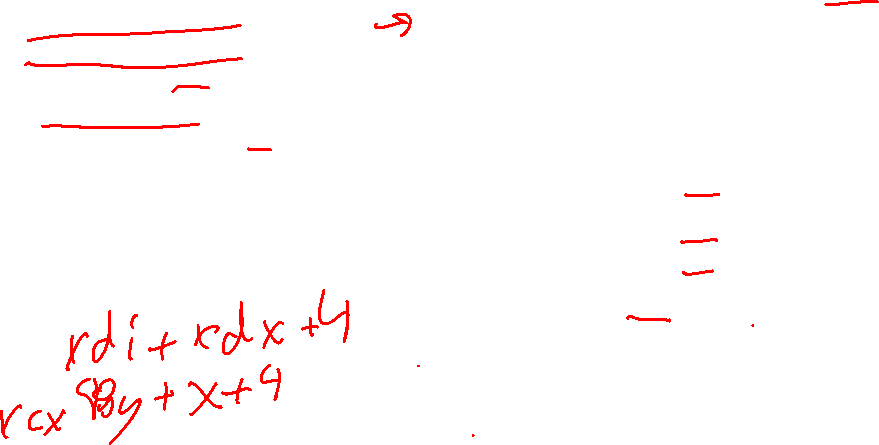 rdi + rdx + 4
rcx 48y + x + 4